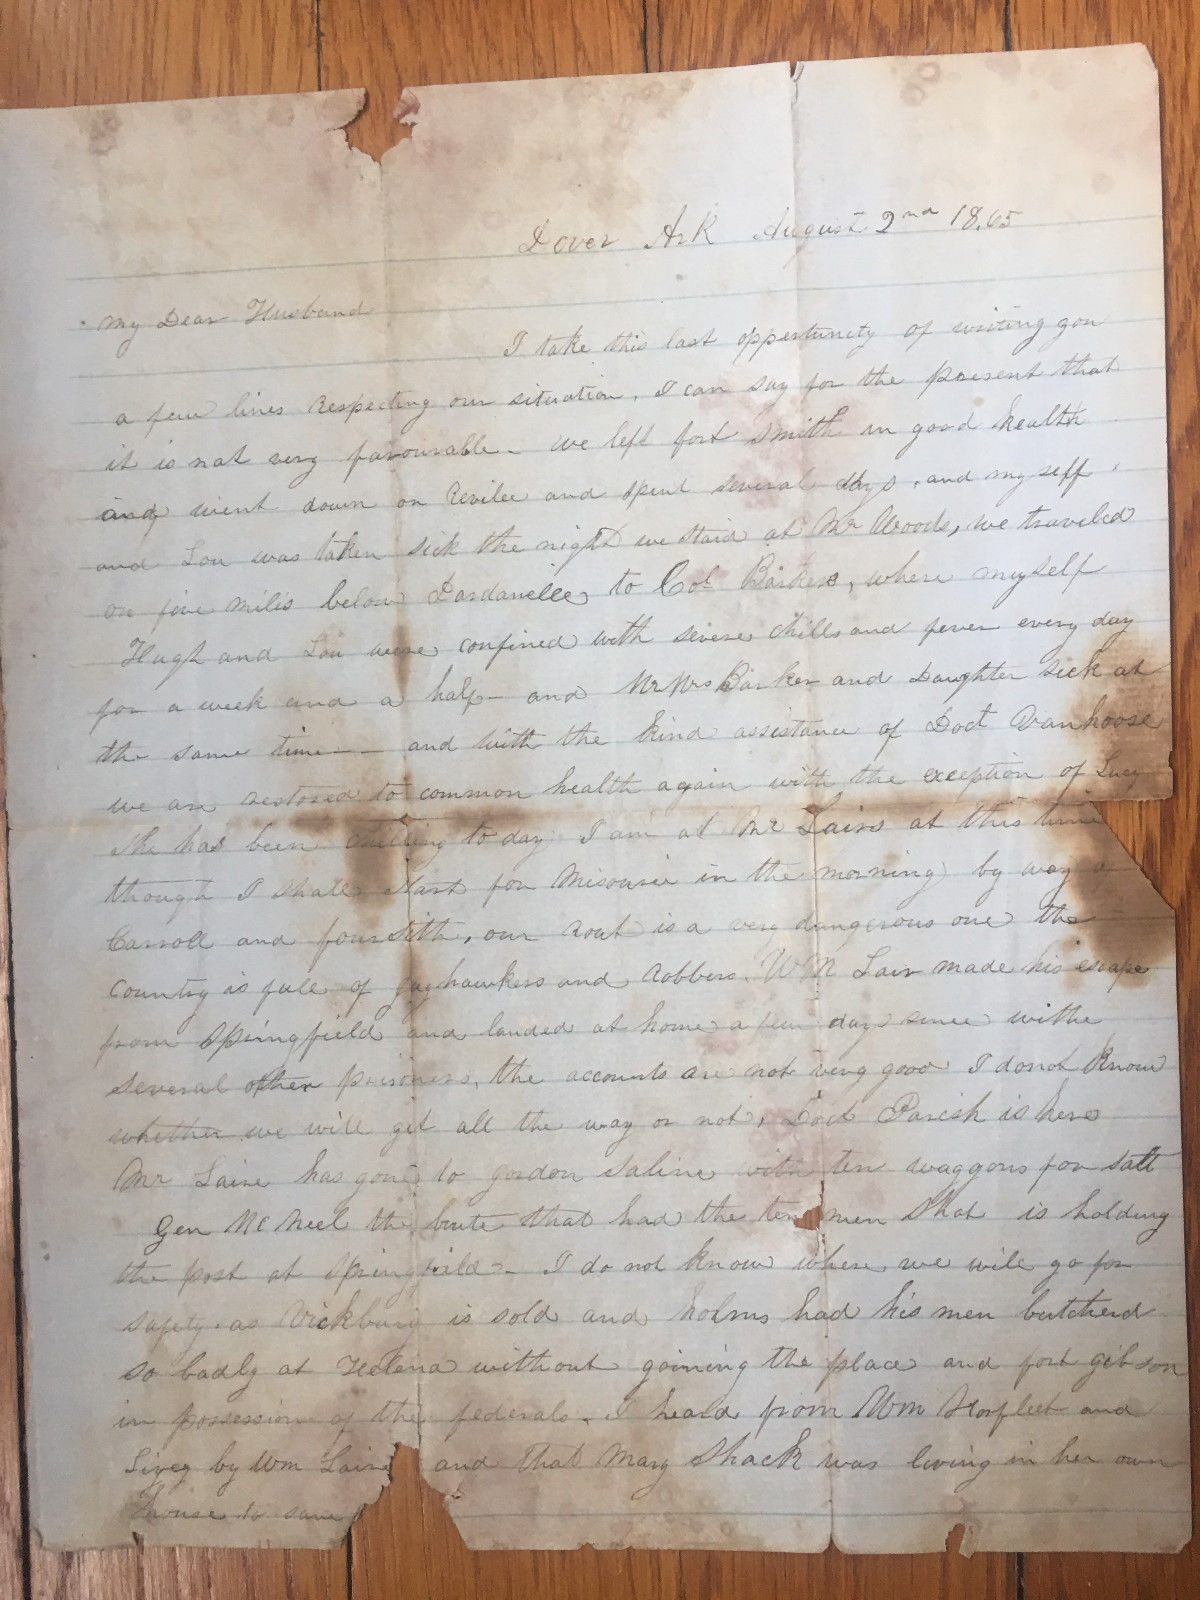 Dover Ark August 2nd 18,65
My Dear Husband
I take this last oppertunity of writing you
a few lines respecting our situation, I can say for the present that
it is not very favourable - we left fort Smith in good health
and went down on and spent several days, and my self
and Lou was taken sick the night we staid at Mr Woods, we traveled
on five miles below Dardanelle to Col Barkers, where myself
Hugh and Lou were confined with severe chills and fever every day
for a week and a half - and Mr Mrs Barker and Daughter sick at
the same time - - and with the kind assistance of Doct Vanhoose
we are restored to common health again with the exception of Lucy
she has been chilling to day, I am at Mr Lairs at this time
though I shall start for Misourie in the morning by way of
Carroll and our rout is a very dangerous one the
country is full of jayhawkers and robbers. WM Lair made his escape
from Springfield and landed at home a few days since withe
several other prisoners, the accounts are not very good I donot know
whether we will git all the way or not, Doct Parish is here
Mr Laire has gone to gordon saline with ten waggons for salt
Gen McNeel the brute that had the ten men shot is holding
the post at Springfield - I do not know where we will go for
safety. as Vickburg is sold and holms had his men butcherd
so badly at Helena without gaining the place and fort gibson
in possession of the federals. I heard from Wm Norfleet and
by Wm Laire and that Mary Shack was living in her own
house to save